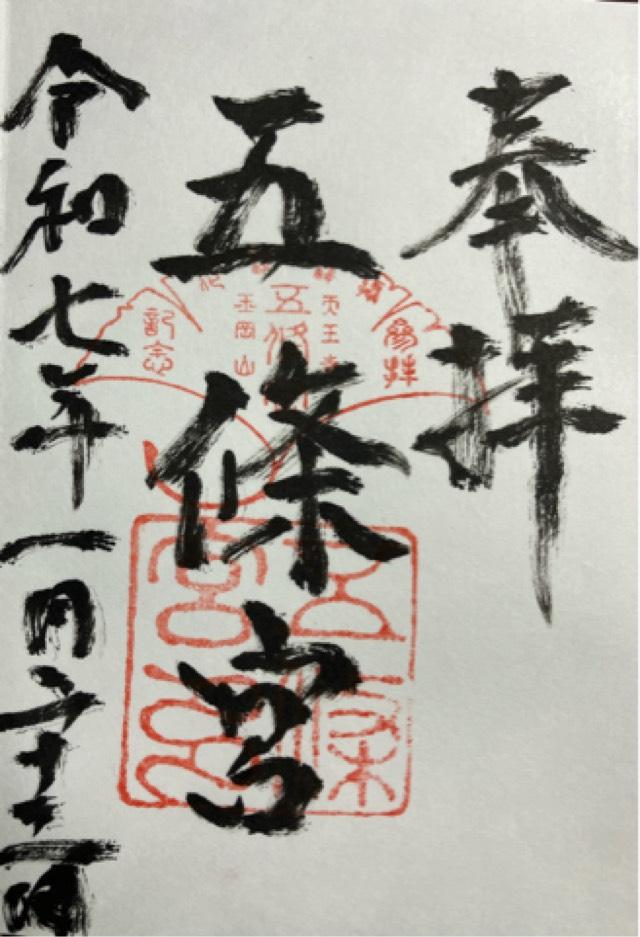 奉拝
五條宮
令和七年一月二十三日
參拝
天王寺
五條
玉岡山
記念
五條
宮